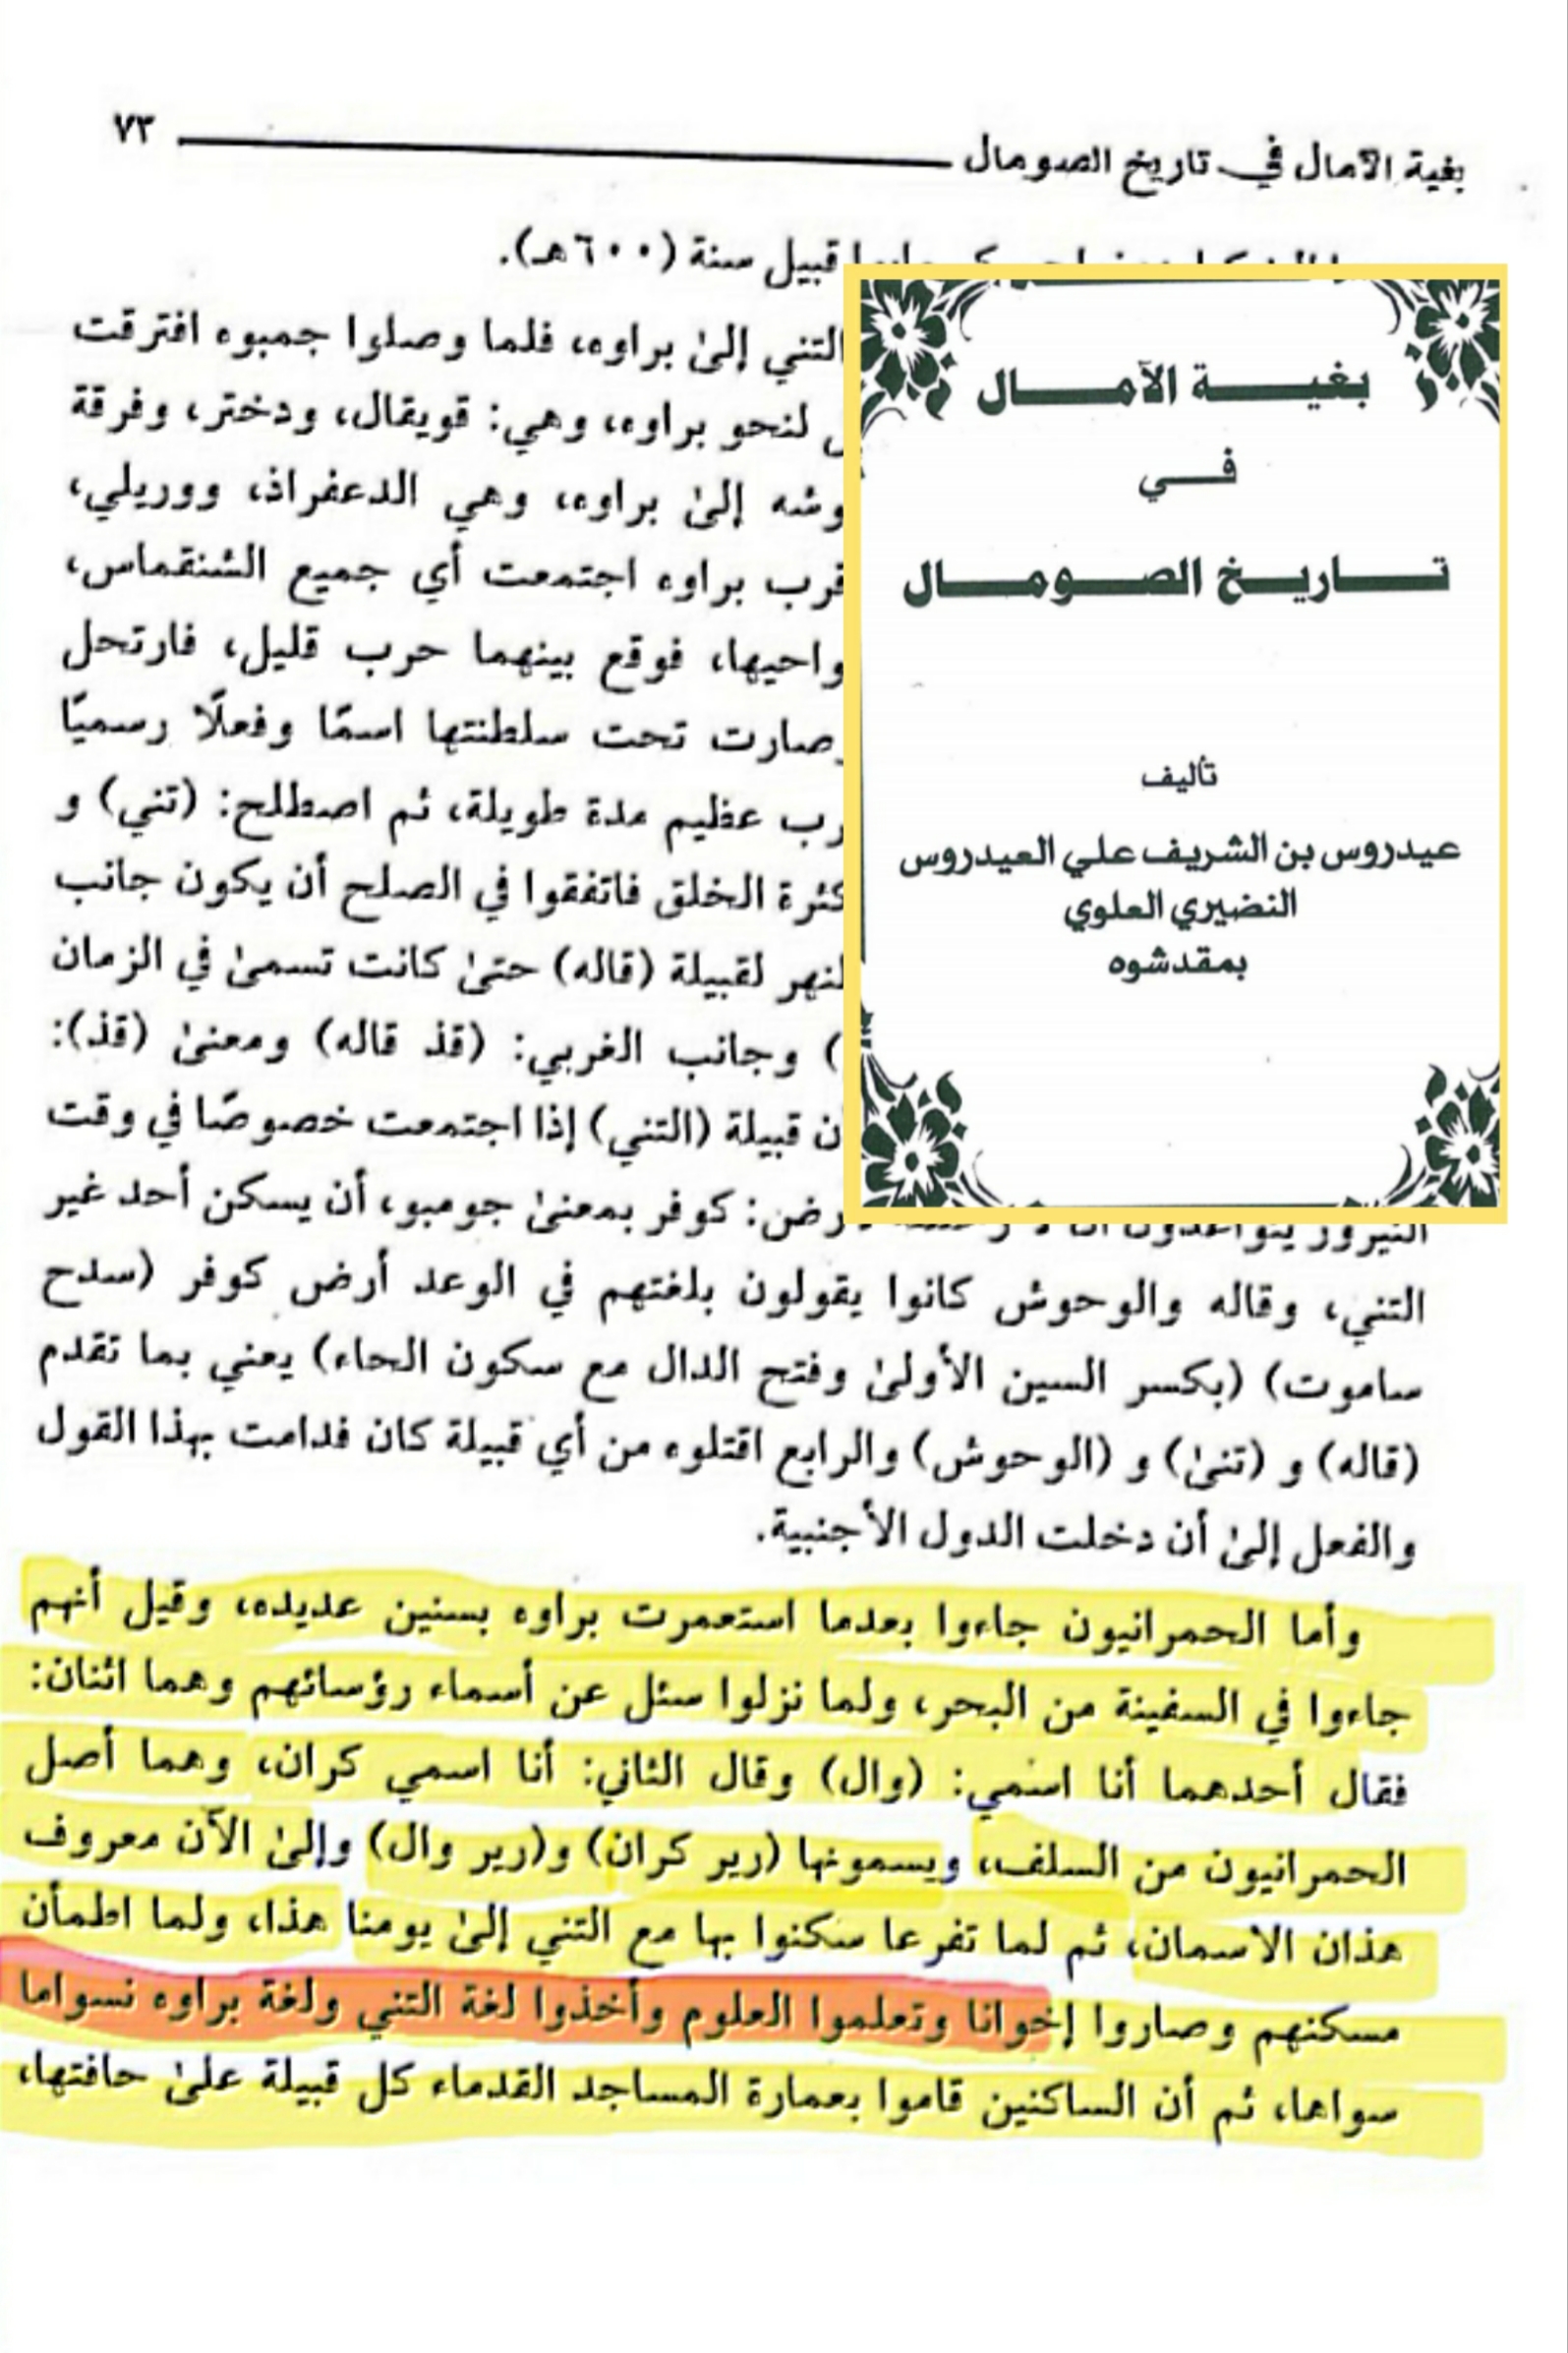 بغية الآمال في تاريخ الصومال ٧٣
قبيل سنة (٦٠٠هـ).
التني إلىٰ براوه، فلما وصلوا جمبوه افترقت
لنحو براوه، وهي: قويقال، ودختر، وفرقة
إلىٰ براوه، وهي الدعفراذ، ووريلي،
قرب براوه اجتمعت أي جميع الشنقماس،
فوقع بينهما حرب قليل، فارتحل
صارت تحت سلطنتها اسمًا وفعلًا رسميًا
عظيم مدة طويلة، ثم اصطلح: (تني) و
كثرة الخلق فاتفقوا في الصلح أن يكون جانب
لقبيلة (قاله) حتىٰ كانت تسمىٰ في الزمان
) وجانب الغربي: (قذ قاله) ومعنىٰ (قذ):
قبيلة (التني) إذا اجتمعت خصوصًا في وقت
كوفر بمعنىٰ جومبو، أن يسكن أحد غير
التني، وقاله والوحوش كانوا يقولون بلغتهم في الوعد أرض كوفر (سدح
ساموت) (بكسر السين الأولىٰ وفتح الدال مع سكون الحاء) يعني بما تقدم
(قاله) و (تنىٰ) و (الوحوش) والرابع اقتلوه من أي قبيلة كان فدامت بهذا القول
والفعل إلىٰ أن دخلت الدول الأجنبية.
وأما الحمرانيون جاءوا بعدما استعمرت براوه بسنين عديده، وقيل أنهم
جاءوا في السفينة من البحر، ولما نزلوا سئل عن أسماء رؤسائهم وهما اثنان:
فقال أحدهما أنا اسمي: (وال) وقال الثاني: أنا اسمي كران، وهما أصل
الحمرانيون من السلف، ويسمونها (رير كران) و(رير وال) وإلىٰ الآن معروف
هذان الاسمان، ثم لما تفرعا سكنوا بها مع التني إلىٰ يومنا هذا، ولما اطمأن
مسكنهم وصاروا إخوانا وتعلموا العلوم وأخذوا لغة التني ولغة براوه نسواما
سواها، ثم أن الساكنين قاموا بعمارة المساجد القدماء كل قبيلة علىٰ حافتها،
بغية الآمال
في
تاريخ الصومال
تأليف
عيدروس بن الشريف علي العيدروس
النضيري العلوي
بمقدشوه